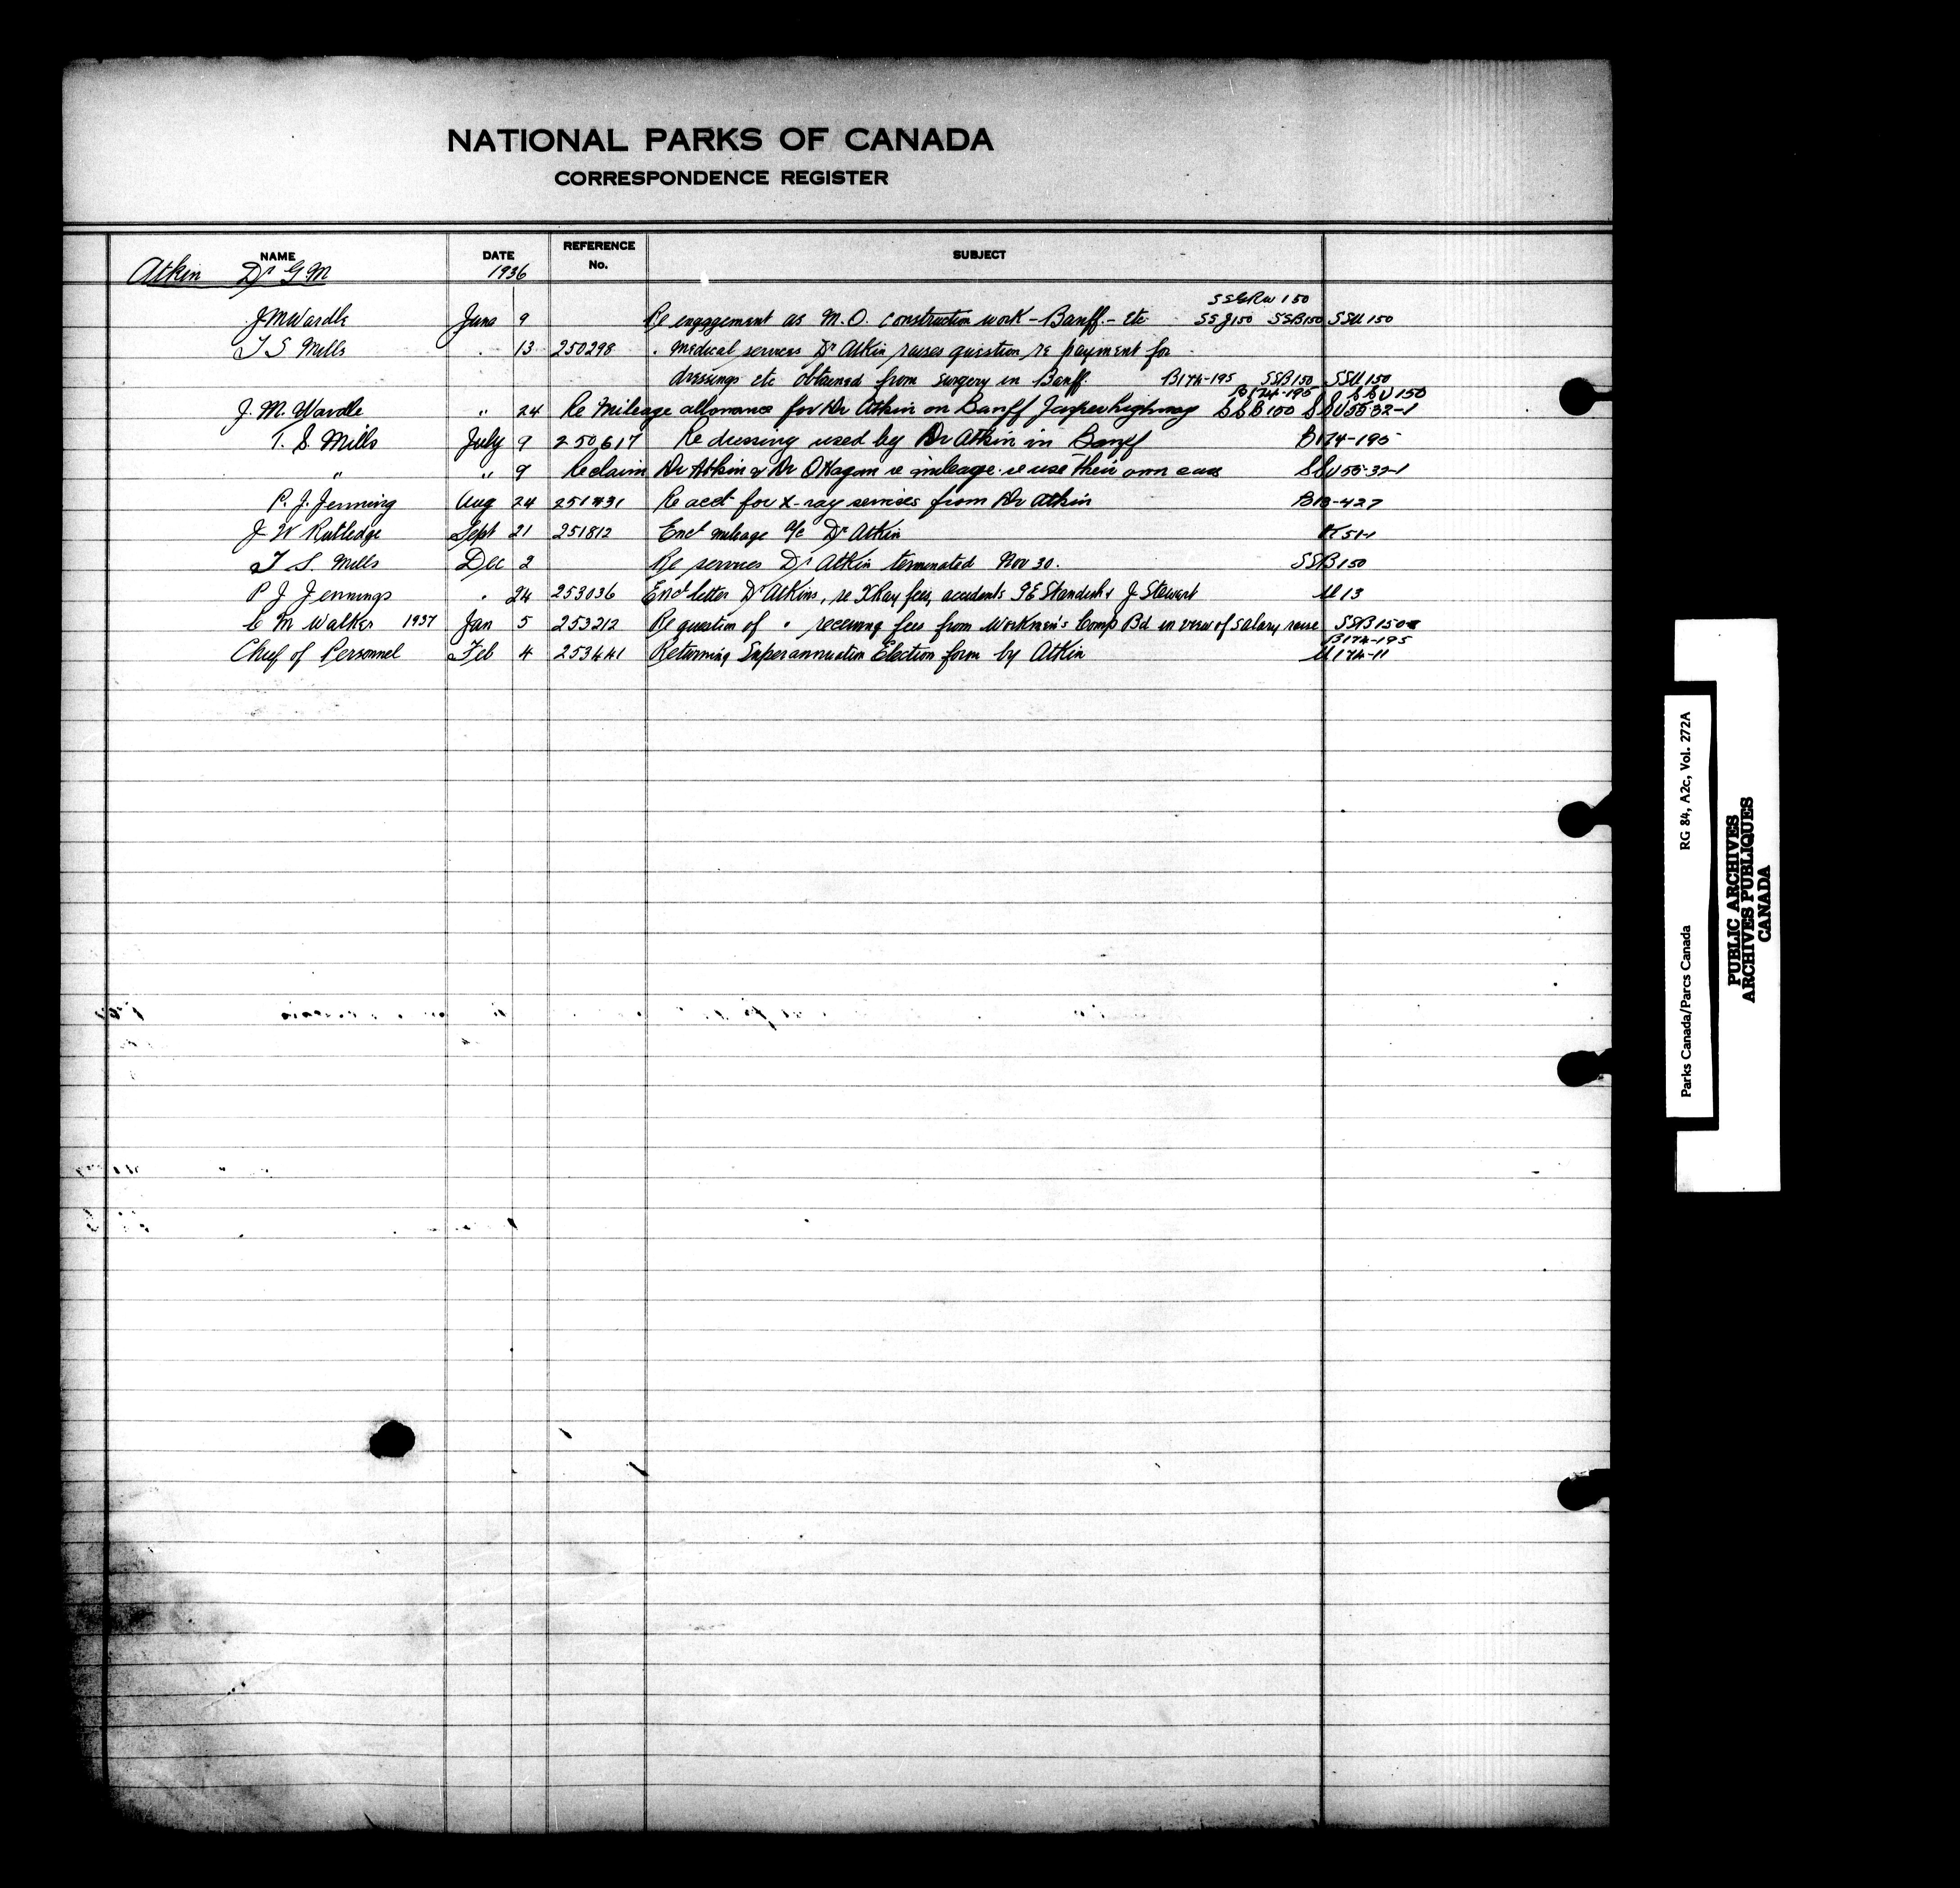 NATIONAL PARKS OF CANADA
CORRESPONDENCE REGISTER
NAME DATE REFERENCE No. SUBJECT
Atkin Dr G.M 1936
SS&RW 150
J M Wardle June 9 Re engagement as M.O. construction work - Banff. - Etc SSJ150 SSB150 SSU 150
T S Mills . 13 250298 . Medical services Dr Atkin raises question re payment for
dressings etc obtained from surgery in Banff. B174-195 SSB150 SSU 150
B174-195 SSU 150
J. M. Wardle " 24 Re Mileage allowance for Dr Atkin on Banff Jasper highway SSB150 SSU55-32-1
T. S. Mills July 9 250617 Re dressing used by Dr Atkin in Banff B174-195
" " 9 Re claim Dr Atkin & Dr O'Hagan re mileage re use their own cars SSU55-32-1
P. J. Jenning Aug 24 251431 Re acct for X-ray services from Dr Atkin B13-427
J W Rutledge Sept 21 251812 Encl mileage a/c Dr Atkin K51-1
T S. Mills Dec 2 Re services Dr Atkin terminated Nov 30. SSB150
P J Jennings . 24 253036 Encl letter Dr Atkins, re XRay fees, accidents F E Standish & J Stewart U13
C M Walker 1937 Jan 5 253212 Re question of " receiving fees from Workmen's Comp Bd in view of salary raise SSB150
B174-195
Chief of Personnel Feb 4 253441 Returning Superannuation Election form by Atkin U174-11
Parks Canada/Parcs Canada RG 84, A2c, Vol. 272A
PUBLIC ARCHIVES
ARCHIVES PUBLIQUES
CANADA